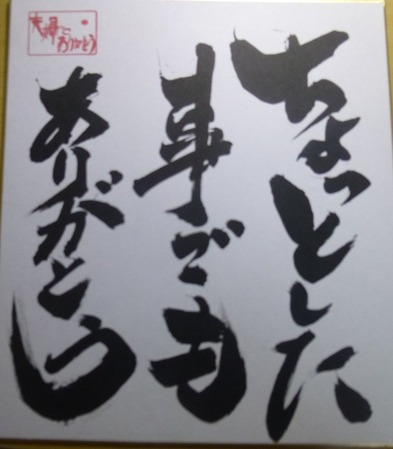 ちょっとした
事でも
ありがとう
夫婦で
ありがとう